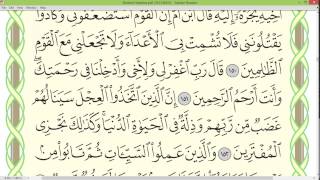 أَخِيهِ يَجُرُّهُۥٓ إِلَيْهِ قَالَ ٱبْنَ أُمَّ إِنَّ ٱلْقَوْمَ ٱسْتَضْعَفُونِى وَكَادُوا۟
يَقْتُلُونَنِى فَلَا تُشْمِتْ بِىَ ٱلْأَعْدَآءَ وَلَا تَجْعَلْنِى مَعَ ٱلْقَوْمِ
ٱلظَّٰلِمِينَ ١٥٠ قَالَ رَبِّ ٱغْفِرْ لِى وَلِأَخِى وَأَدْخِلْنَا فِى رَحْمَتِكَ
وَأَنتَ أَرْحَمُ ٱلرَّٰحِمِينَ ١٥١ إِنَّ ٱلَّذِينَ ٱتَّخَذُوا۟ ٱلْعِجْلَ سَيَنَالُهُمْ
غَضَبٌ مِّن رَّبِّهِمْ وَذِلَّةٌ فِى ٱلْحَيَوٰةِ ٱلدُّنْيَا وَكَذَٰلِكَ نَجْزِى
ٱلْمُفْتَرِينَ ١٥٢ وَٱلَّذِينَ عَمِلُوا۟ ٱلسَّيِّـَٔاتِ ثُمَّ تَابُوا۟ مِنۢ